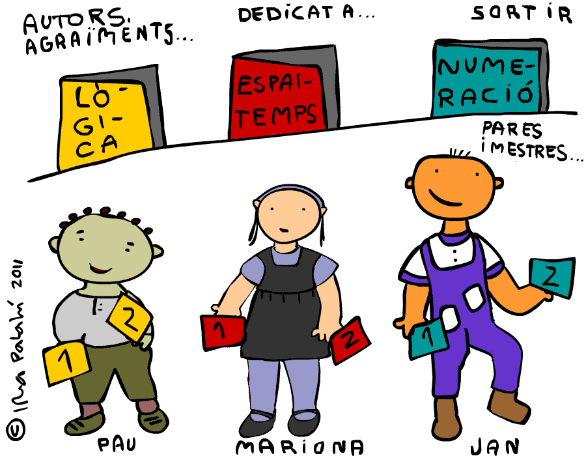 AUTORS,
AGRAÏMENTS...
DEDICAT A...
SORTIR
LÒ-
GI-
CA
ESPAI-
TEMPS
NUME-
RACIÓ
PARES
I MESTRES...
1
2
1
2
1
2
PAU
MARIONA
JAN
© 2011